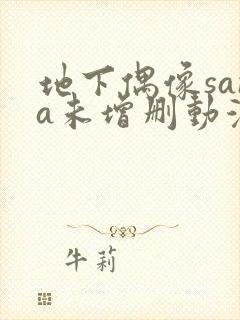 地下偶像san
a未增删动漫
牛莉